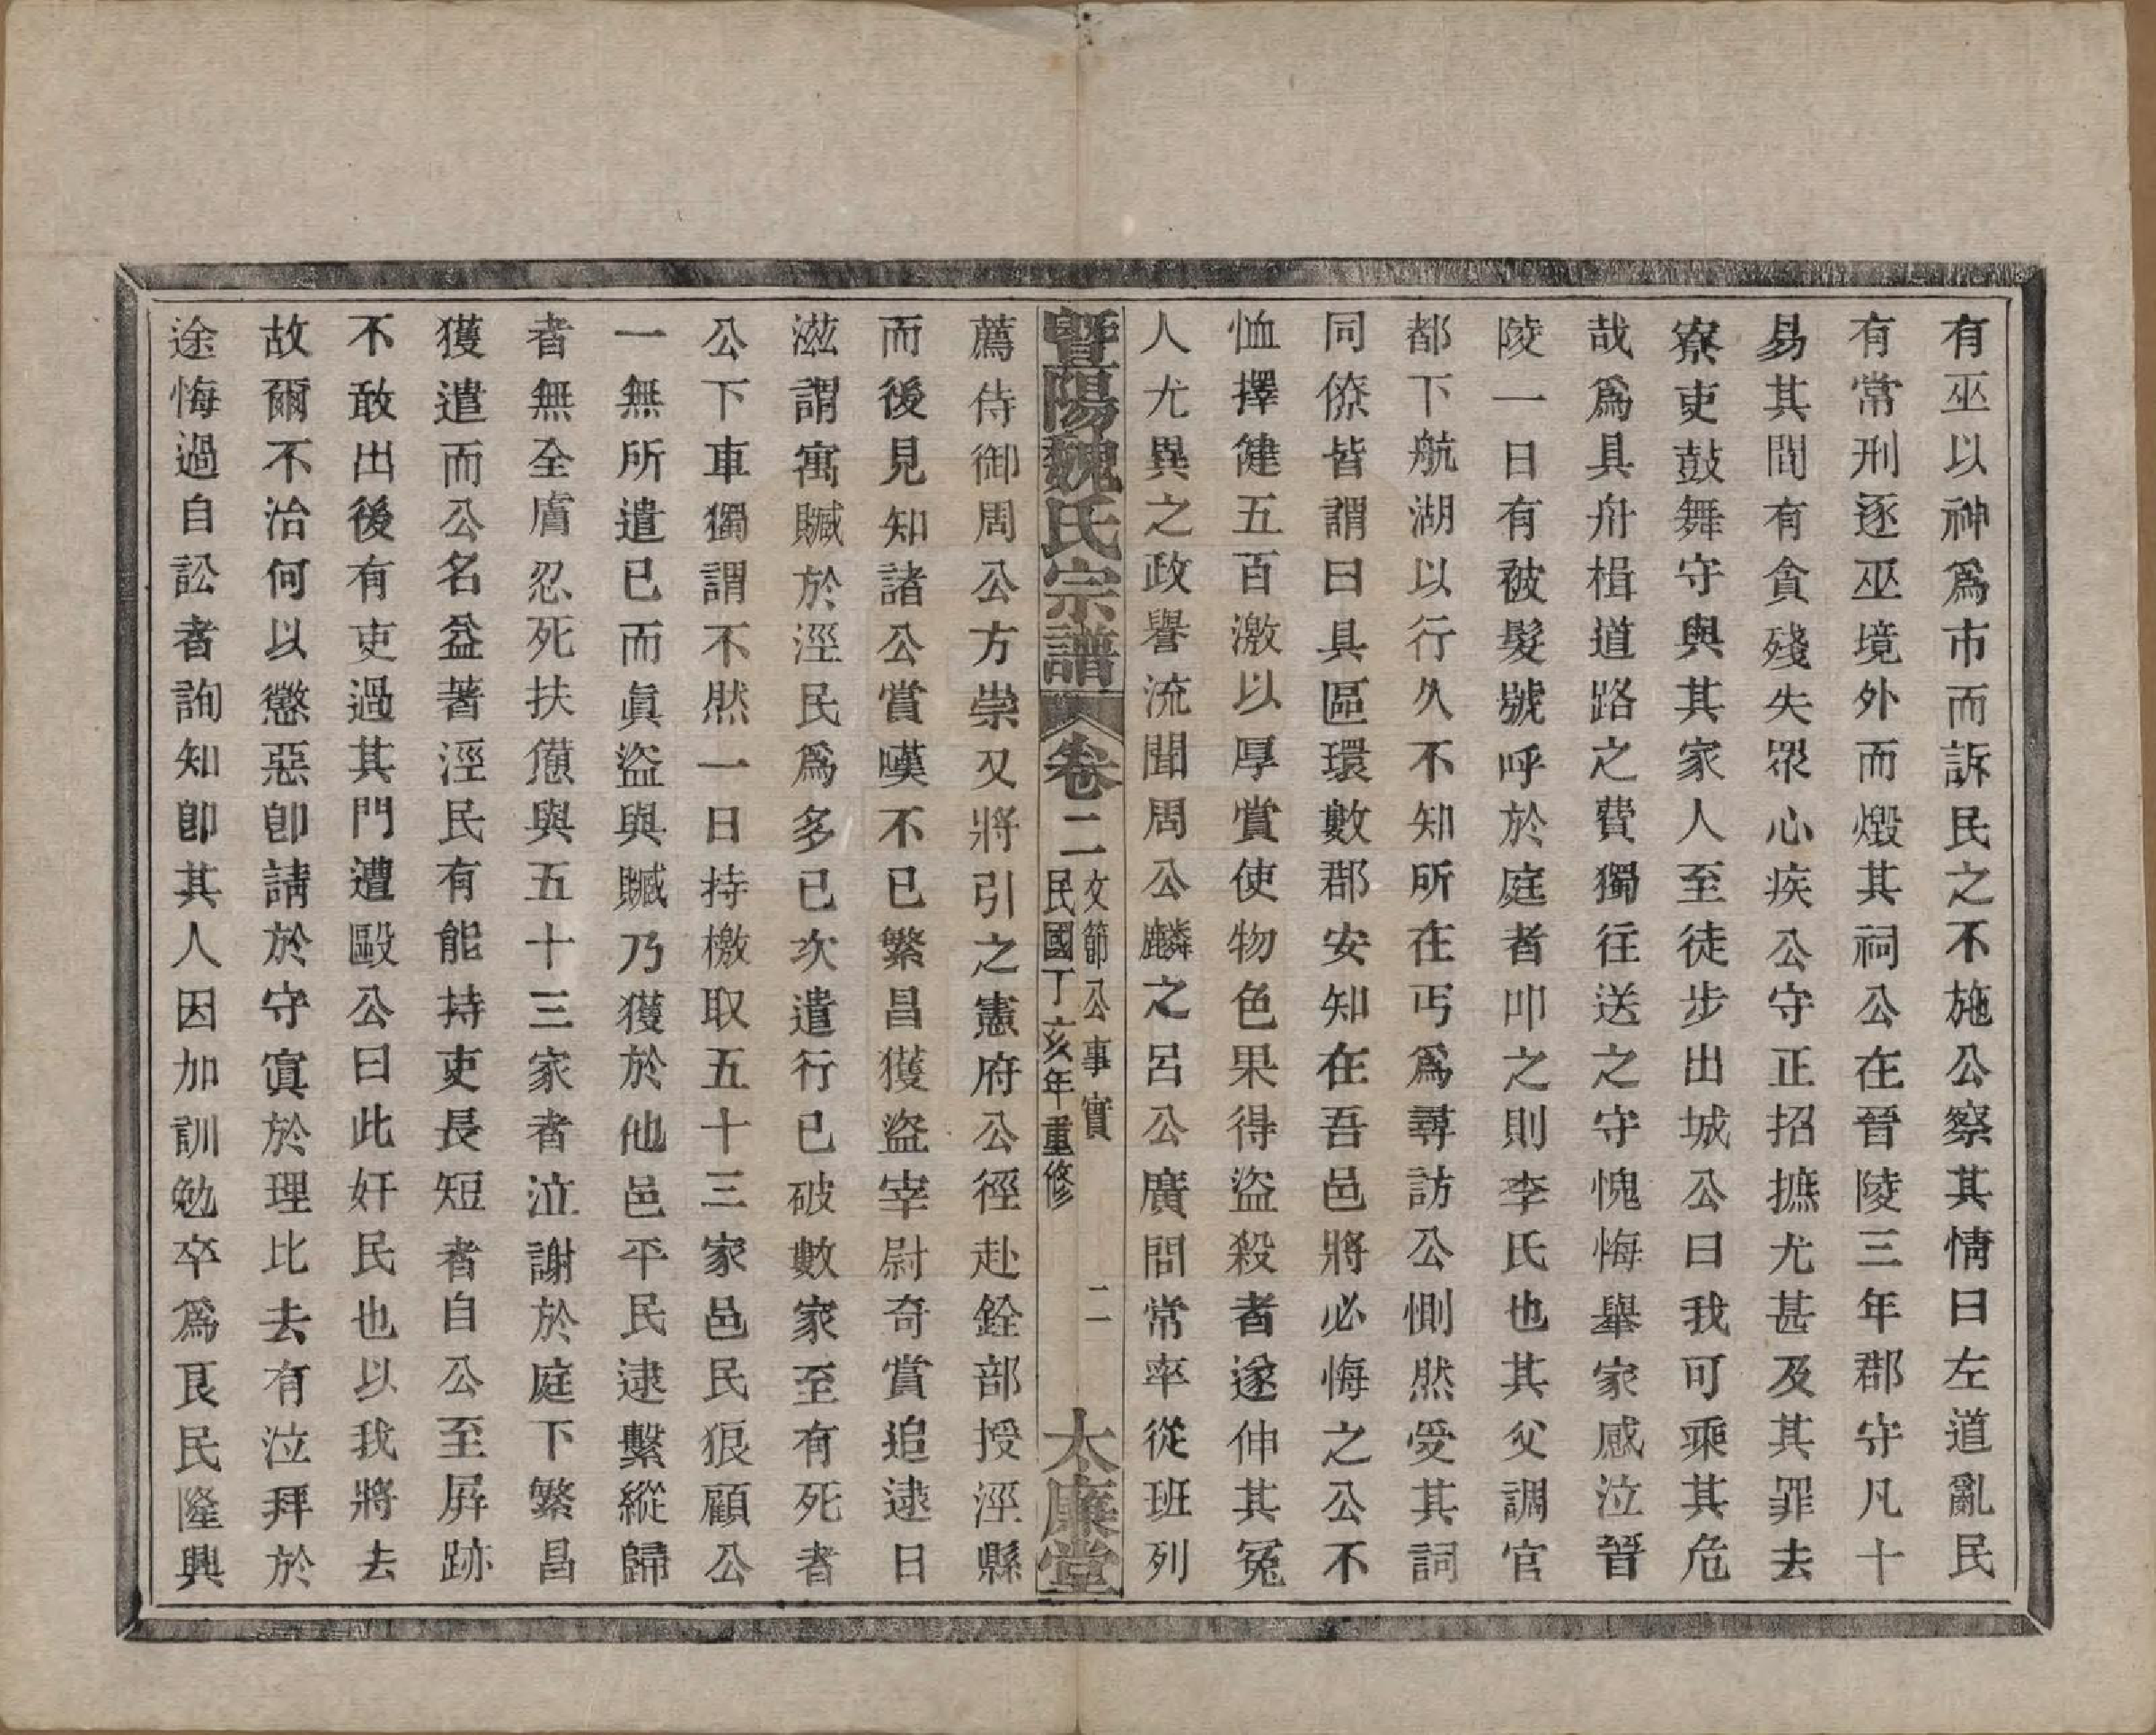 有巫以神爲市而訴民之不施公察其情曰左道亂民
有常刑逐巫境外而燬其祠公在晉陵三年郡守凡十
易其間有貪殘失眾心疾公守正招摭尤甚及其罪去
寮吏鼓舞守與其家人至徒步出城公曰我可乘其危
哉爲具舟楫道路之費獨往送之守愧悔舉家感泣晉
陵一日有被髮號呼於庭者叩之則李氏也其父調官
都下航湖以行久不知所在丐爲尋訪公惻然受其詞
同僚皆謂曰具區環數郡安知在吾邑將必悔之公不
恤擇健五百激以厚賞使物色果得盜殺者遂伸其冤
人尤異之政譽流聞周公麟之呂公廣問常率從班列
暨陽魏氏宗譜 卷二 文節公事實 民國丁亥年重修 二 大廉堂
薦侍御周公方崇又將引之憲府公徑赴銓部授涇縣
而後見知諸公賞嘆不已繁昌獲盜宰尉奇賞追逮日
滋謂寓贓於涇民爲多已次遣行已破數家至有死者
公下車獨謂不然一日持檄取五十三家邑民狠顧公
一無所遣已而眞盜與贓乃獲於他邑平民逮繫縱歸
者無全膚忍死扶憊與五十三家者泣謝於庭下繁昌
獲遣而公名益著涇民有能持吏長短者自公至屏跡
不敢出後有吏過其門遭毆公曰此奸民也以我將去
故爾不治何以懲惡卽請於守寘於理比去有泣拜於
途悔過自訟者詢知卽其人因加訓勉卒爲良民隆興